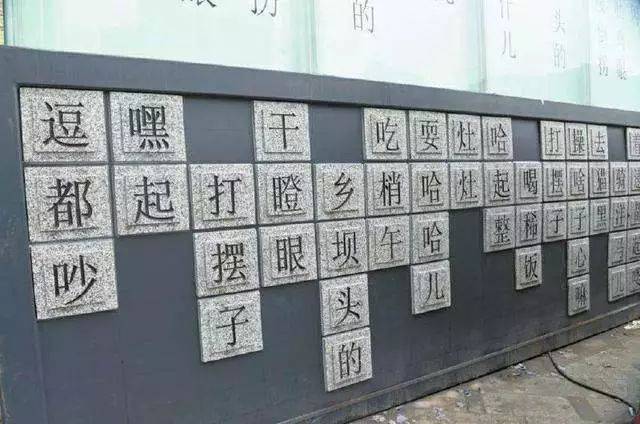 头的
逗都吵
嘿起
打摆子
干瞪眼
乡坝头的
吃梢午
耍哈哈儿
灶灶
哈起整
喝稀饭
打摆子
操啥子心
去